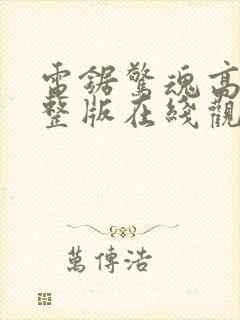 電鋸驚魂高
整版在綫觀
萬傳浩